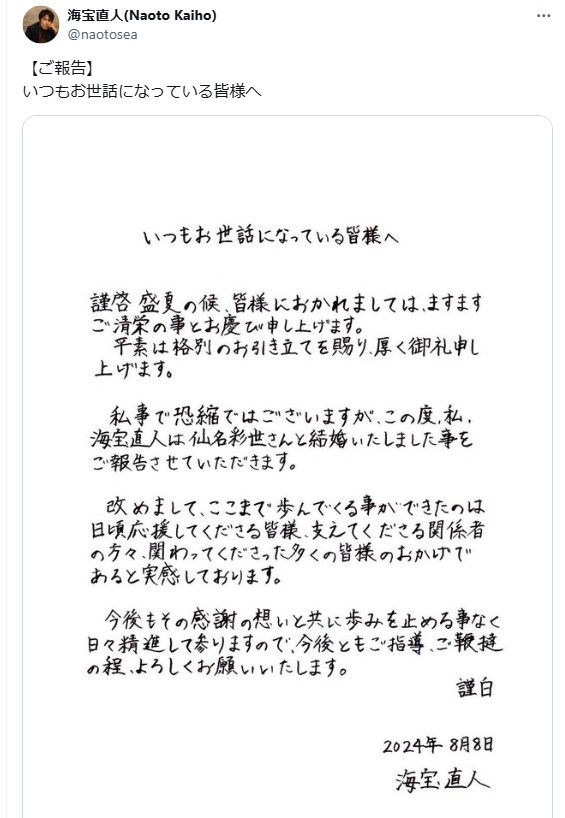 海宝直人(Naoto Kaiho)
@naotosea
【ご報告】
いつもお世話になっている皆様へ
いつもお世話になっている皆様へ
謹啓 盛夏の候、皆様におかれましては、ますます
ご清栄の事とお慶び申し上げます。
平素は格別のお引き立てを賜り、厚く御礼申し
上げます。
私事で恐縮ではございますが、この度、私、
海宝直人は仙名彩世さんと結婚いたしました事を
ご報告させていただきます。
改めまして、ここまで歩んでくる事ができたのは
日頃応援してくださる皆様、支えてくださる関係者
の方々、関わってくださった多くの皆様のおかげで
あると実感しております。
今後もその感謝の想いと共に歩みを止める事なく
日々精進して参りますので、今後ともご指導、ご鞭撻
の程、よろしくお願いいたします。
謹白
2024年 8月8日
海宝直人